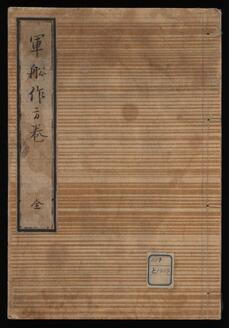 軍船作方巻
全